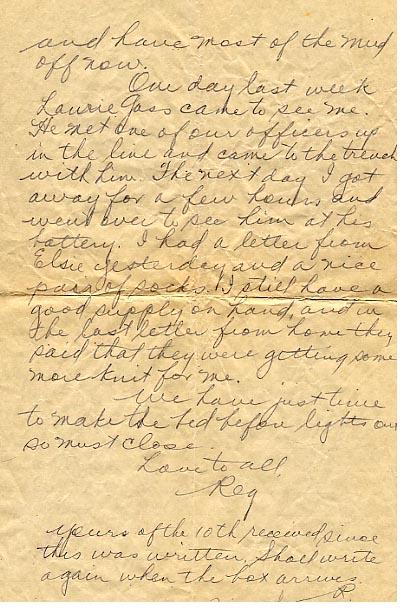 and have most of the mud
off now.
One day last week
Laurie Gass came to see me.
He met one of our officers up
in the line and came to the trench
with him. The next day I got
away for a few hours and
went over to see him at his
battery. I had a letter from
Elsie yesterday and a nice
para of socks. I still have a
good supply on hand, and in
the last letter from home they
said that they were getting some
more knit for me.
We have just time
to make the bed before lights out
so must close.
Love to all,
Reg
Yours of the 10th received since
this was written. Shall write
again when the box arrives.
R